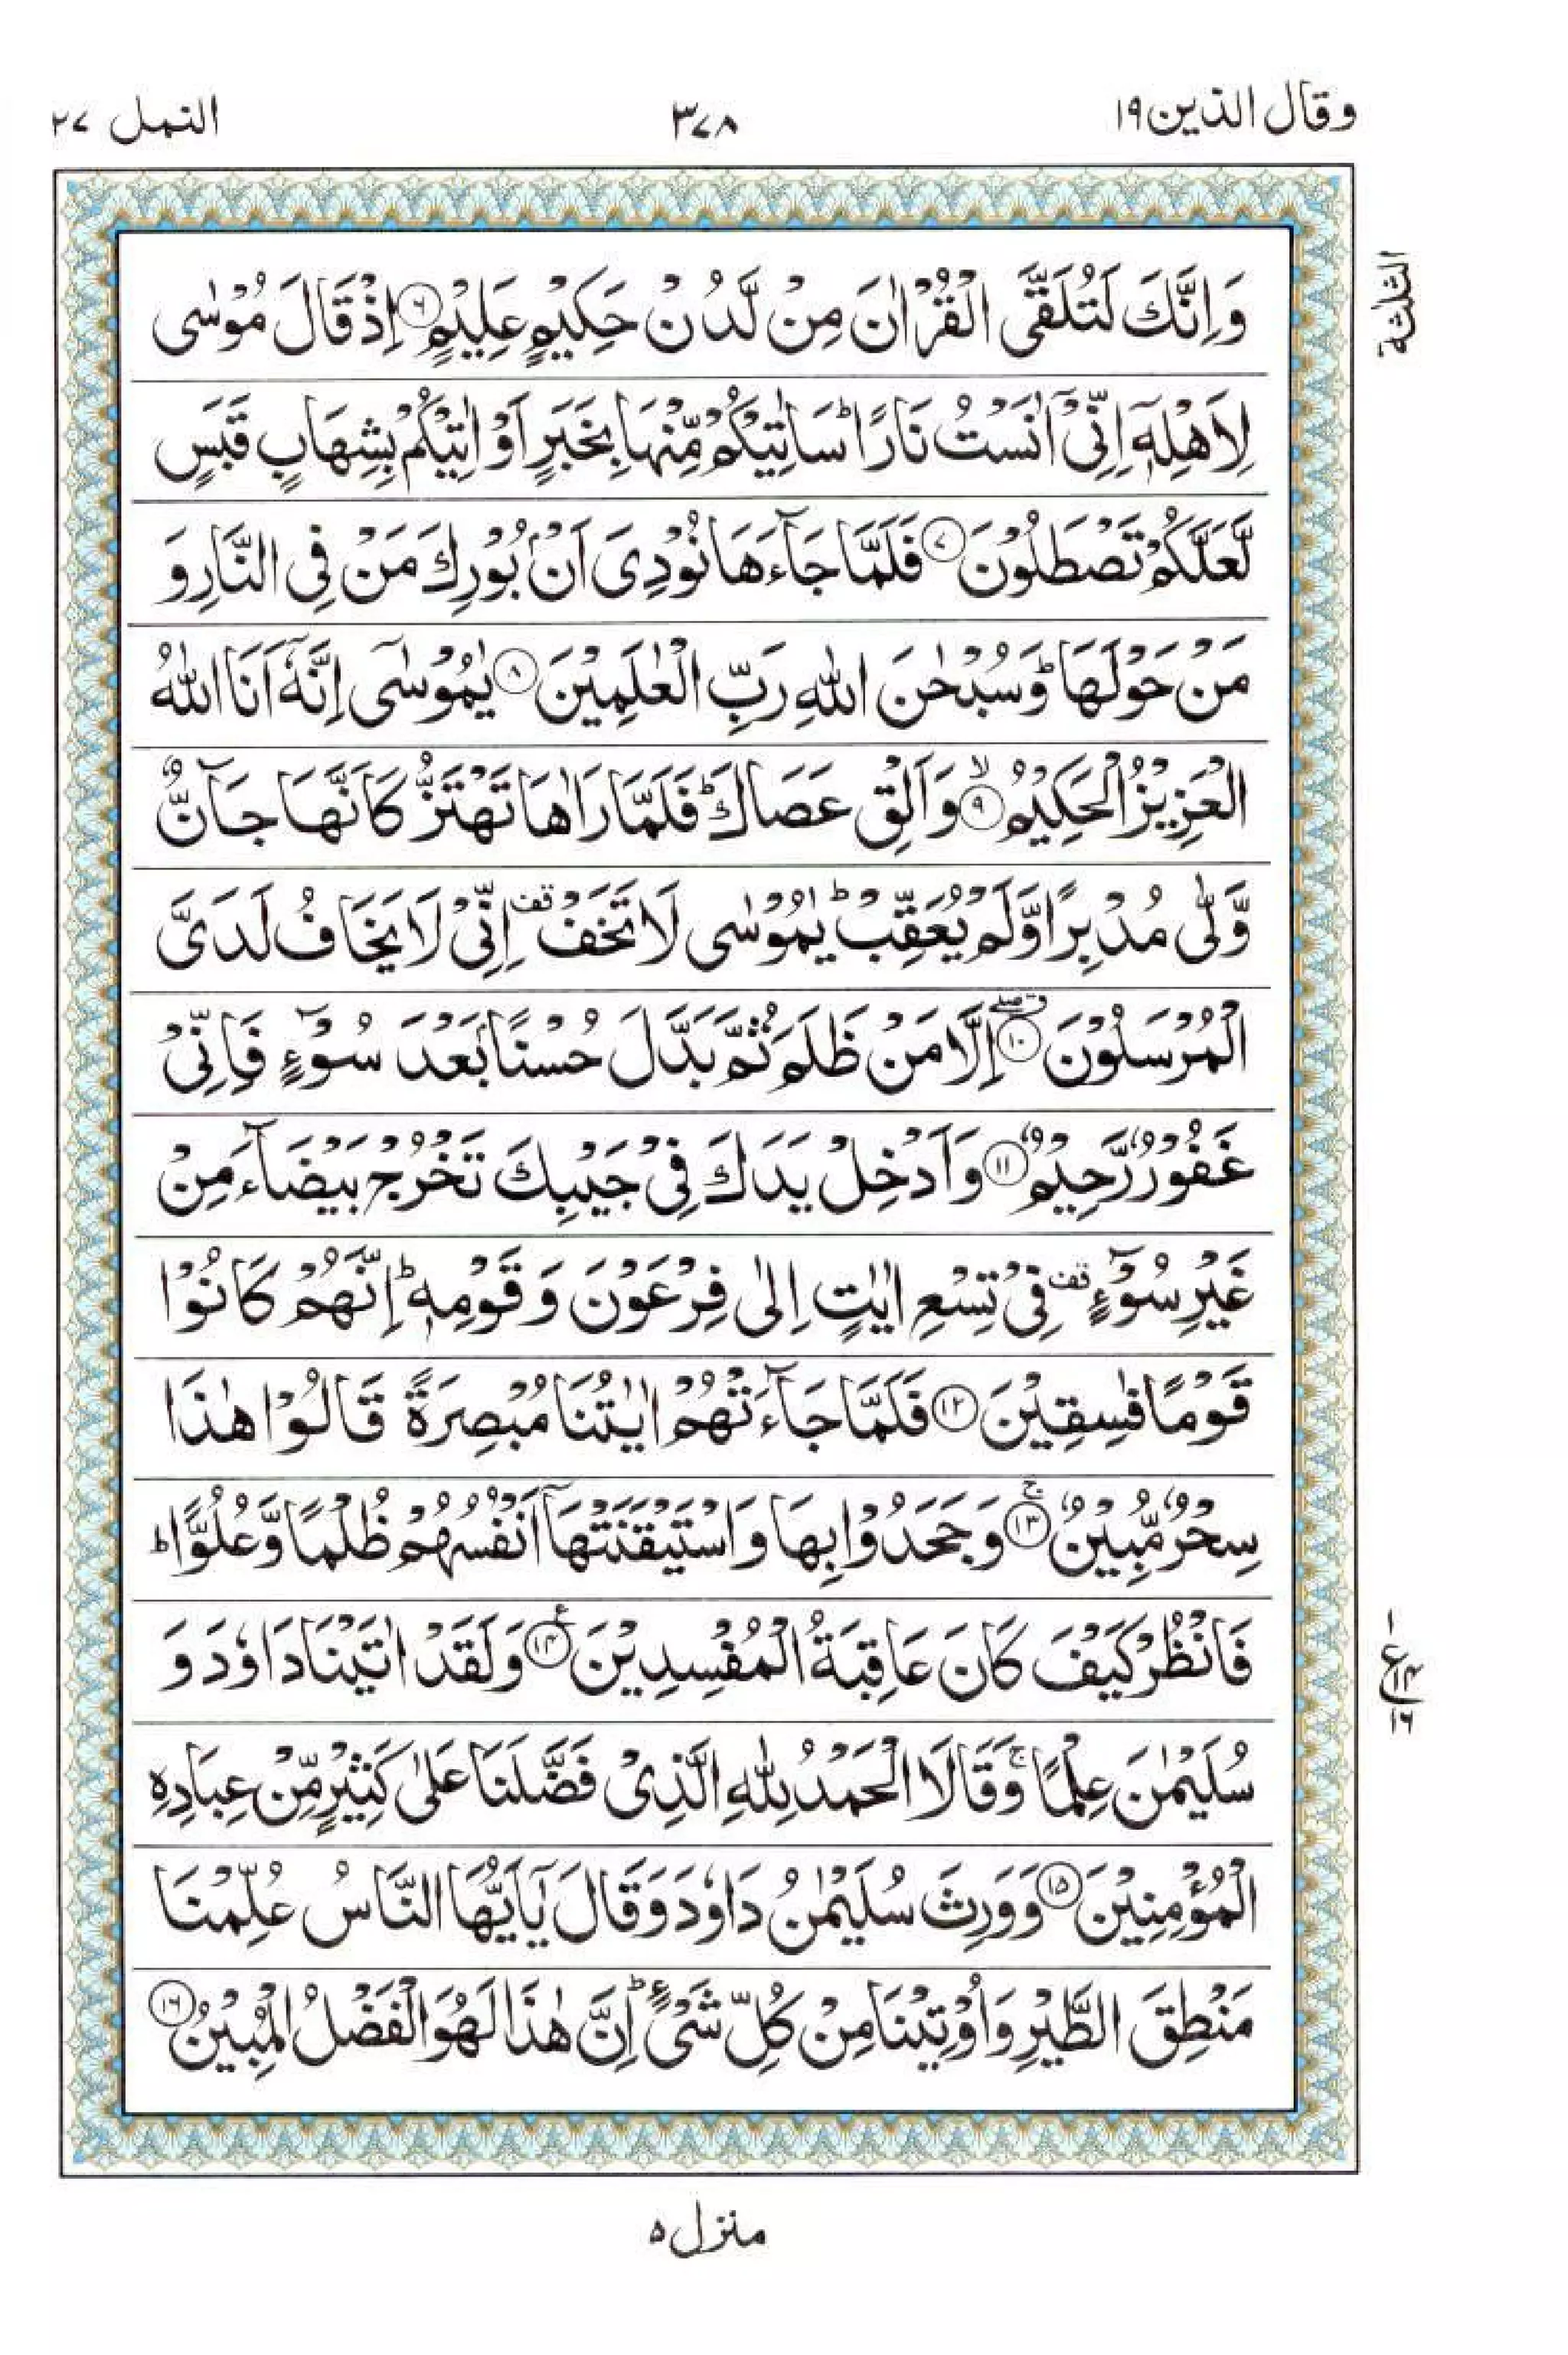 وقال الذين ١٩
٣٧٨
النمل ٢٧
الثلثة
وَاِنَّكَ لَتُلَقَّى الْقُرْاٰنَ مِنْ لَّدُنْ حَكِيْمٍ عَلِيْمٍ ۝٦ اِذْ قَالَ مُوْسٰى
لِاَهْلِهٖٓ اِنِّىْٓ اٰنَسْتُ نَارًا ؕ سَاٰتِيْكُمْ مِّنْهَا بِخَبَرٍ اَوْ اٰتِيْكُمْ بِشِهَابٍ قَبَسٍ
لَّعَلَّكُمْ تَصْطَلُوْنَ ۝٧ فَلَمَّا جَآءَهَا نُوْدِىَ اَنْۢ بُوْرِكَ مَنْ فِى النَّارِ وَ
مَنْ حَوْلَهَا ؕ وَسُبْحٰنَ اللّٰهِ رَبِّ الْعٰلَمِيْنَ ۝٨ يٰمُوْسٰٓى اِنَّهٗٓ اَنَا اللّٰهُ
الْعَزِيْزُ الْحَكِيْمُ ۙ۝٩ وَاَلْقِ عَصَاكَ ؕ فَلَمَّا رَاٰهَا تَهْتَزُّ كَاَنَّهَا جَآنٌّ
وَّلّٰى مُدْبِرًا وَّلَمْ يُعَقِّبْ ؕ يٰمُوْسٰى لَا تَخَفْ قف اِنِّىْ لَا يَخَافُ لَدَىَّ
الْمُرْسَلُوْنَ ق ۖ۝١٠ اِلَّا مَنْ ظَلَمَ ثُمَّ بَدَّلَ حُسْنًۢا بَعْدَ سُوْٓءٍ فَاِنِّىْ
غَفُوْرٌ رَّحِيْمٌ ۝١١ وَاَدْخِلْ يَدَكَ فِىْ جَيْبِكَ تَخْرُجْ بَيْضَآءَ مِنْ
غَيْرِ سُوْٓءٍ قف فِىْ تِسْعِ اٰيٰتٍ اِلٰى فِرْعَوْنَ وَقَوْمِهٖ ؕ اِنَّهُمْ كَانُوْا
قَوْمًا فٰسِقِيْنَ ۝١٢ فَلَمَّا جَآءَتْهُمْ اٰيٰتُنَا مُبْصِرَةً قَالُوْا هٰذَا
سِحْرٌ مُّبِيْنٌ ۚ۝١٣ وَجَحَدُوْا بِهَا وَاسْتَيْقَنَتْهَآ اَنْفُسُهُمْ ظُلْمًا وَّعُلُوًّا ؕ
فَانْظُرْ كَيْفَ كَانَ عَاقِبَةُ الْمُفْسِدِيْنَ ع ۝١٤ وَلَقَدْ اٰتَيْنَا دَاوٗدَ وَ
سُلَيْمٰنَ عِلْمًا ۚ وَقَالَا الْحَمْدُ لِلّٰهِ الَّذِىْ فَضَّلَنَا عَلٰى كَثِيْرٍ مِّنْ عِبَادِهِ
الْمُؤْمِنِيْنَ ۝١٥ وَوَرِثَ سُلَيْمٰنُ دَاوٗدَ وَقَالَ يٰٓاَيُّهَا النَّاسُ عُلِّمْنَا
مَنْطِقَ الطَّيْرِ وَاُوْتِيْنَا مِنْ كُلِّ شَىْءٍ ؕ اِنَّ هٰذَا لَهُوَ الْفَضْلُ الْمُبِيْنُ ۝١٦
١
ع ١٤
١٦
منزل ٥